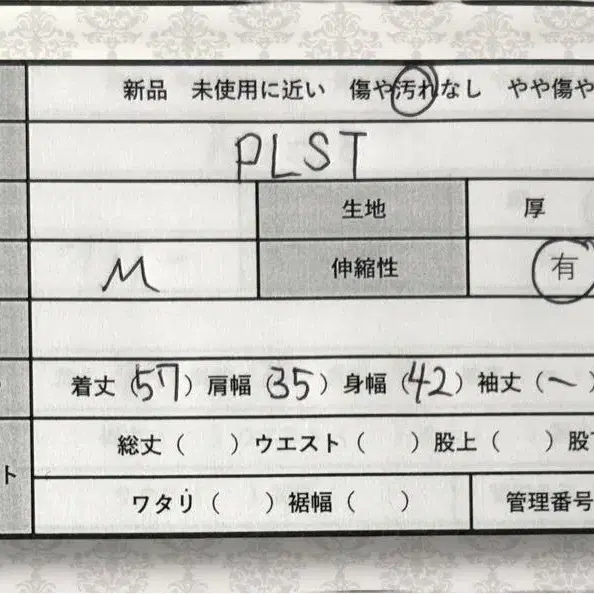 新品 未使用に近い 傷や汚れなし やや傷や
PLST
生地 厚
M 伸縮性 有
着丈(57)肩幅(35)身幅(42)袖丈(ー)
総丈( )ウエスト( )股上( )股下
ト
ワタリ( )裾幅( ) 管理番号